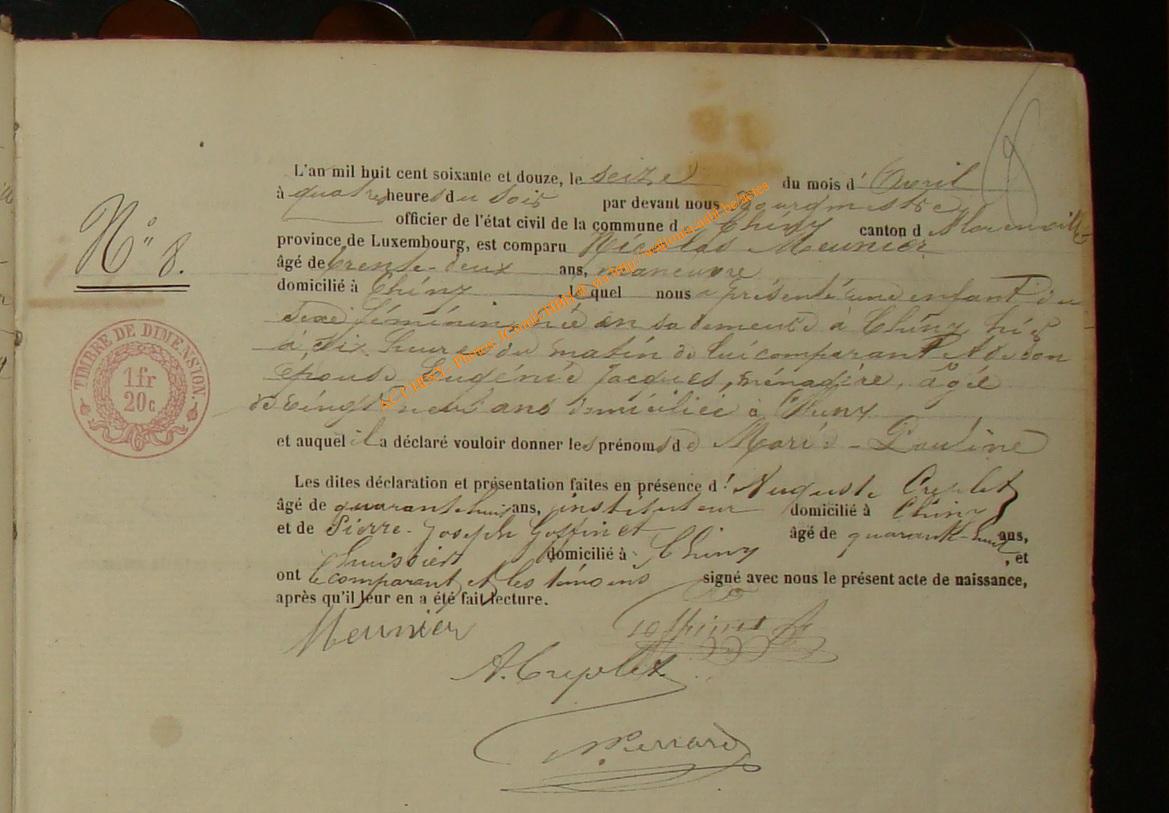 L'an mil huit cent soixante et douze, le seize du mois d' Avril
à quatre heures du soir par devant nous Bourgmestre
officier de l'état civil de la commune d Chiny canton d
province de Luxembourg, est comparu Nicolas Meunier
âgé de trente-deux ans, maneuvre
domicilié à Chiny le quel nous a présenté une enfant du
Sexe féminin née en sa demeure à Chiny hier
à dix heures du matin de lui comparant et de son
épouse Eugénie Jacques, ménagère, âgée
de Vingt neuf ans domiciliée à Chiny
et auquel il a déclaré vouloir donner les prénoms de Marie-Pauline
Les dites déclaration et présentation faites en présence d' Auguste Creplet
âgé de quarante huit ans, instituteur domicilié à Chiny
et de Pierre-Joseph Goffinet âgé de quarante-huit ans,
huissier domicilié à Chiny, et
ont le comparant et les témoins signé avec nous le présent acte de naissance,
après qu'il leur en a été fait lecture.
N° 8.
TIMBRE DE DIMENSION.
1 fr
20 c
8
Meunier
Goffinet
A. Creplet